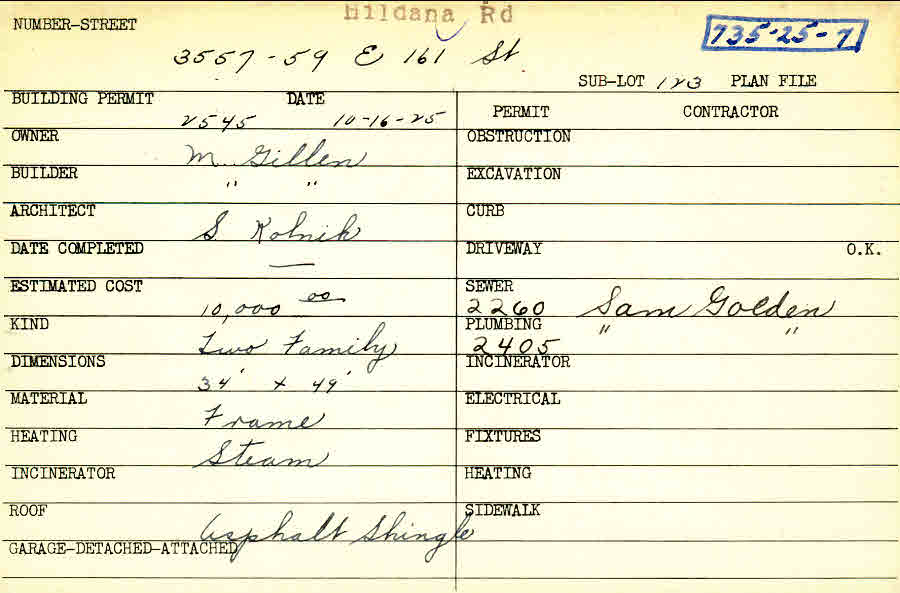 Hildana Rd
NUMBER-STREET
735-25-7
3557-59 E 161 St
SUB-LOT 123 PLAN FILE
BUILDING PERMIT DATE
2545 10-16-25
PERMIT CONTRACTOR
OWNER
M. Gillen
BUILDER
" "
ARCHITECT
S. Kolnik
DATE COMPLETED
—
ESTIMATED COST
10,000 00
KIND
Two Family
DIMENSIONS
34' x 49'
MATERIAL
Frame
HEATING
Steam
INCINERATOR
ROOF
Asphalt Shingle
GARAGE-DETACHED-ATTACHED
OBSTRUCTION
EXCAVATION
CURB
DRIVEWAY O.K.
SEWER
2260 Sam Golden
PLUMBING " "
2405
INCINERATOR
ELECTRICAL
FIXTURES
HEATING
SIDEWALK